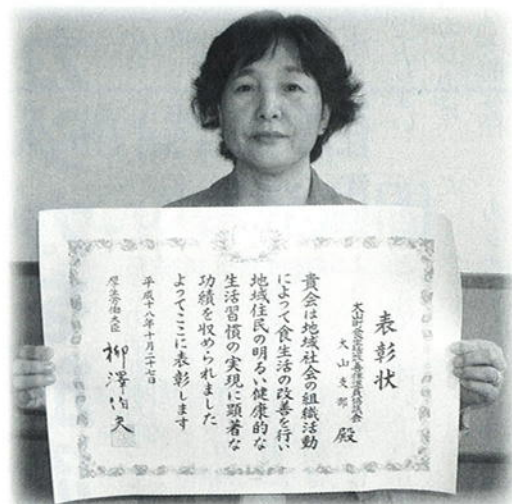 表彰状
大山町食生活改善推進員協議会
大山支部 殿
貴会は地域社会の組織活動
によって食生活の改善を行い
地域住民の明るい健康的な
生活習慣の実現に顕著な
功績を収められました
よってここに表彰します
平成十八年十月二十七日
厚生労働大臣 柳澤伯夫